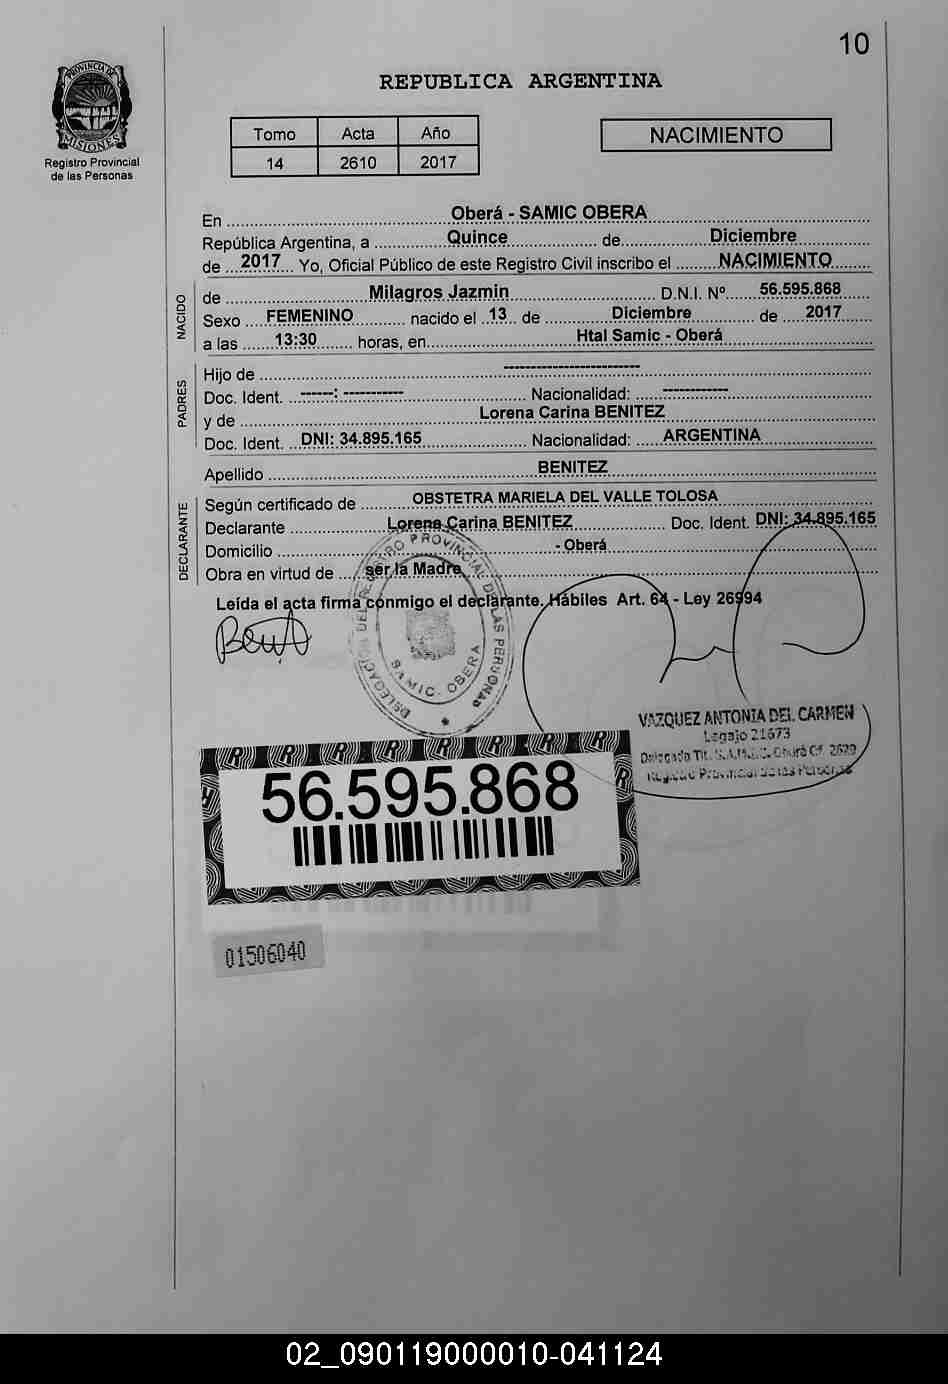 10
PROVINCIA DE
MISIONES
Registro Provincial
de las Personas
REPUBLICA ARGENTINA
Tomo Acta Año
14 2610 2017
NACIMIENTO
En Oberá - SAMIC OBERA
República Argentina, a Quince de Diciembre
de 2017 Yo, Oficial Público de este Registro Civil inscribo el NACIMIENTO
NACIDO
de Milagros Jazmin D.N.I. Nº 56.595.868
Sexo FEMENINO nacido el 13 de Diciembre de 2017
a las 13:30 horas, en Htal Samic - Oberá
PADRES
Hijo de -----------------------
Doc. Ident. ------: ----------- Nacionalidad: ------------
y de Lorena Carina BENITEZ
Doc. Ident. DNI: 34.895.165 Nacionalidad: ARGENTINA
Apellido BENITEZ
DECLARANTE
Según certificado de OBSTETRA MARIELA DEL VALLE TOLOSA
Declarante Lorena Carina BENITEZ Doc. Ident. DNI: 34.895.165
Domicilio - Oberá
Obra en virtud de ser la Madre
Leída el acta firma conmigo el declarante. Hábiles Art. 64 - Ley 26994
DELEGACION DEL REGISTRO PROVINCIAL DE LAS PERSONAS
SAMIC. OBERA
VAZQUEZ ANTONIA DEL CARMEN
Legajo 21673
Delegado Tit. S.A.M.I.C. Oberá Cf. 2629
Registro Provincial de las Personas
56.595.868
01506040
02_090119000010-041124